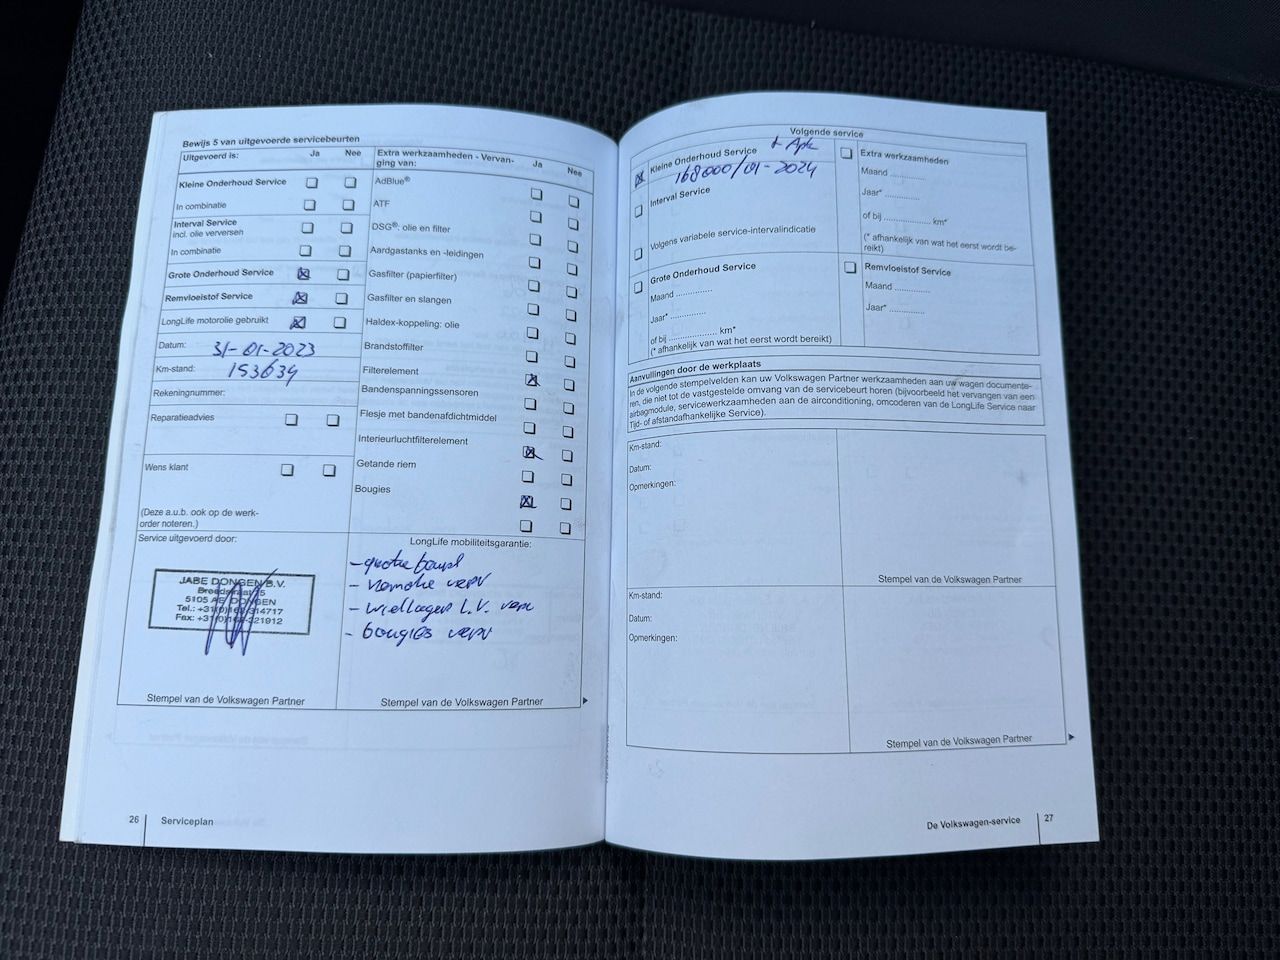 Bewijs 5 van uitgevoerde servicebeurten
Uitgevoerd is: Ja Nee
Kleine Onderhoud Service
In combinatie
Interval Service
incl. olie verversen
In combinatie
Grote Onderhoud Service
Remvloeistof Service
LongLife motorolie gebruikt
Datum: 31-01-2023
Km-stand: 153634
Rekeningnummer:
Reparatieadvies
Wens klant
(Deze a.u.b. ook op de werk-
order noteren.)
Extra werkzaamheden - Vervan-
ging van: Ja Nee
AdBlue®
ATF
DSG®: olie en filter
Aardgastanks en -leidingen
Gasfilter (papierfilter)
Gasfilter en slangen
Haldex-koppeling: olie
Brandstoffilter
Filterelement
Bandenspanningssensoren
Flesje met bandenafdichtmiddel
Interieurluchtfilterelement
Getande riem
Bougies
Service uitgevoerd door:
JABE DONGEN B.V.
5105 AE DONGEN
Stempel van de Volkswagen Partner
LongLife mobiliteitsgarantie:
- grote beurt
- remolie verv
- wiellagers L.V. verv
- bougies verv
Stempel van de Volkswagen Partner
26 Serviceplan
Volgende service
Kleine Onderhoud Service + Apk
168000/01-2024
Interval Service
Volgens variabele service-intervalindicatie
Grote Onderhoud Service
Maand ...............
Jaar* ...............
of bij .................... km*
(* afhankelijk van wat het eerst wordt bereikt)
Extra werkzaamheden
Maand ..............
Jaar* ..............
of bij .................... km*
(* afhankelijk van wat het eerst wordt be-
reikt)
Remvloeistof Service
Maand ..............
Jaar* ..............
Aanvullingen door de werkplaats
In de volgende stempelvelden kan uw Volkswagen Partner werkzaamheden aan uw wagen documente-
ren, die niet tot de vastgestelde omvang van de servicebeurt horen (bijvoorbeeld het vervangen van een
airbagmodule, servicewerkzaamheden aan de airconditioning, omcoderen van de LongLife Service naar
Tijd- of afstandafhankelijke Service).
Km-stand:
Datum:
Opmerkingen:
Stempel van de Volkswagen Partner
Km-stand:
Datum:
Opmerkingen:
Stempel van de Volkswagen Partner
De Volkswagen-service 27